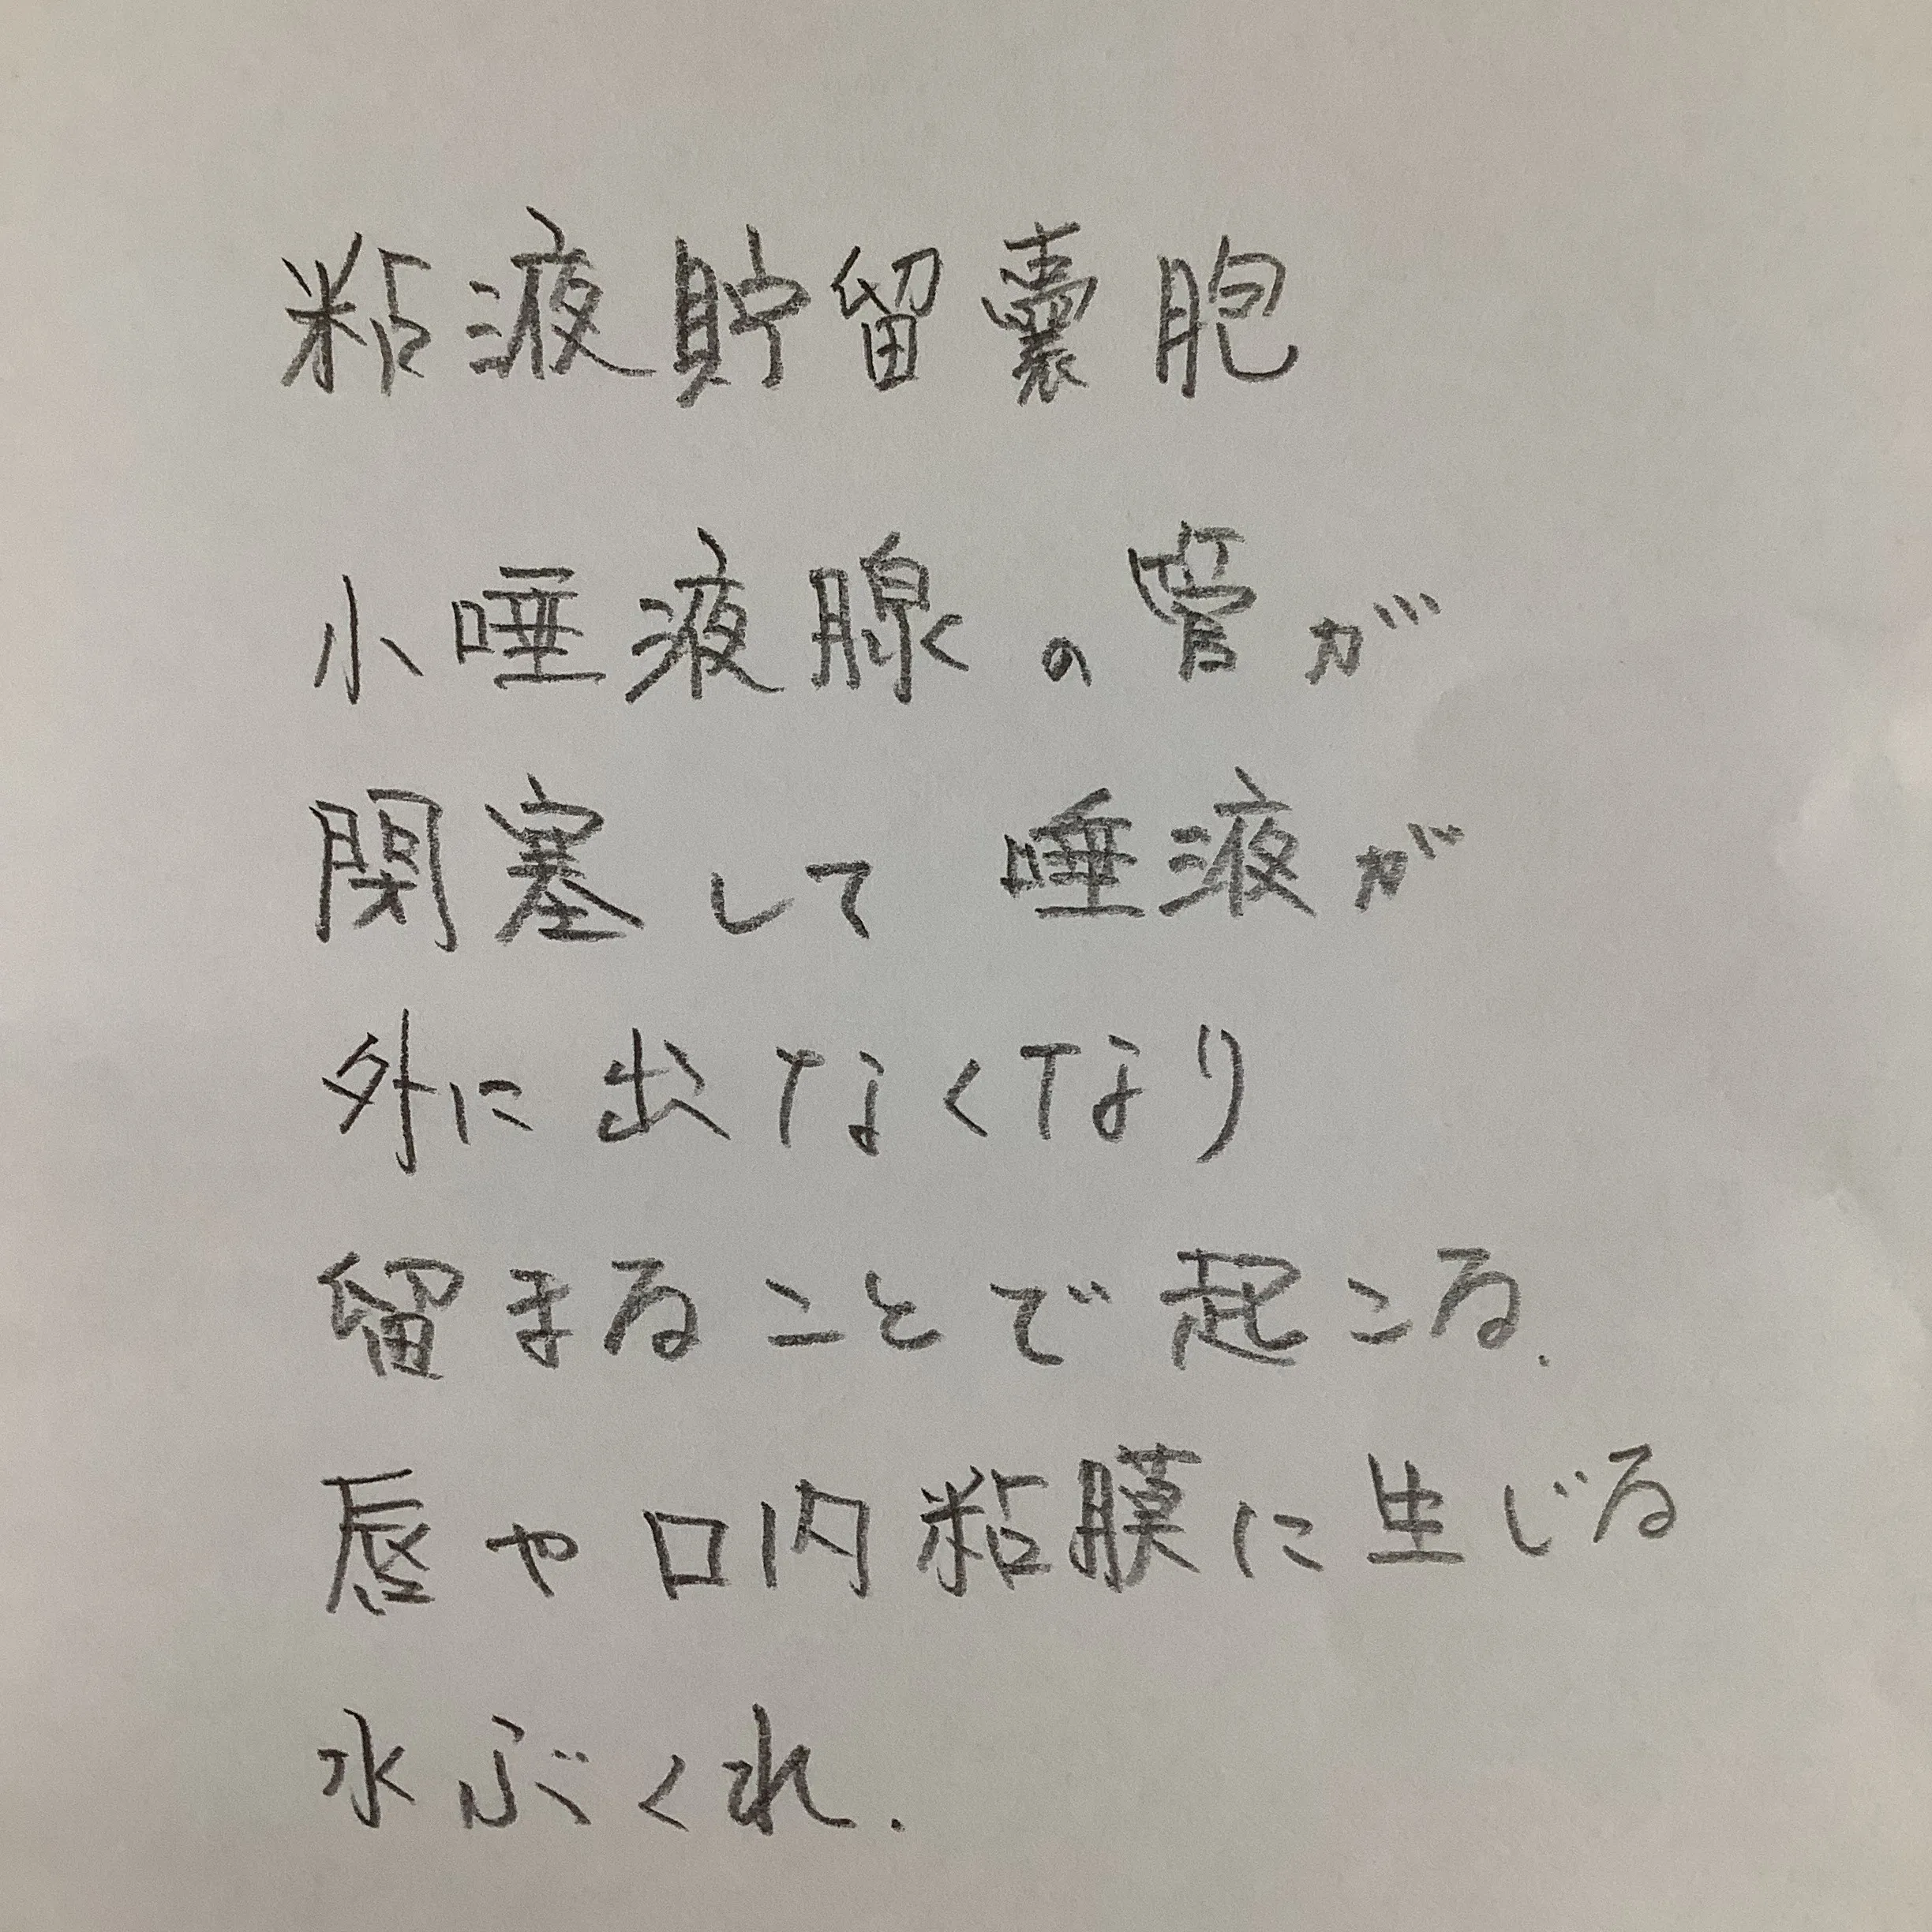 粘液貯留嚢胞
小唾液腺の管が
閉塞して 唾液が
外に出なくなり
留まることで起こる.
唇や口内粘膜に生じる
水ぶくれ.